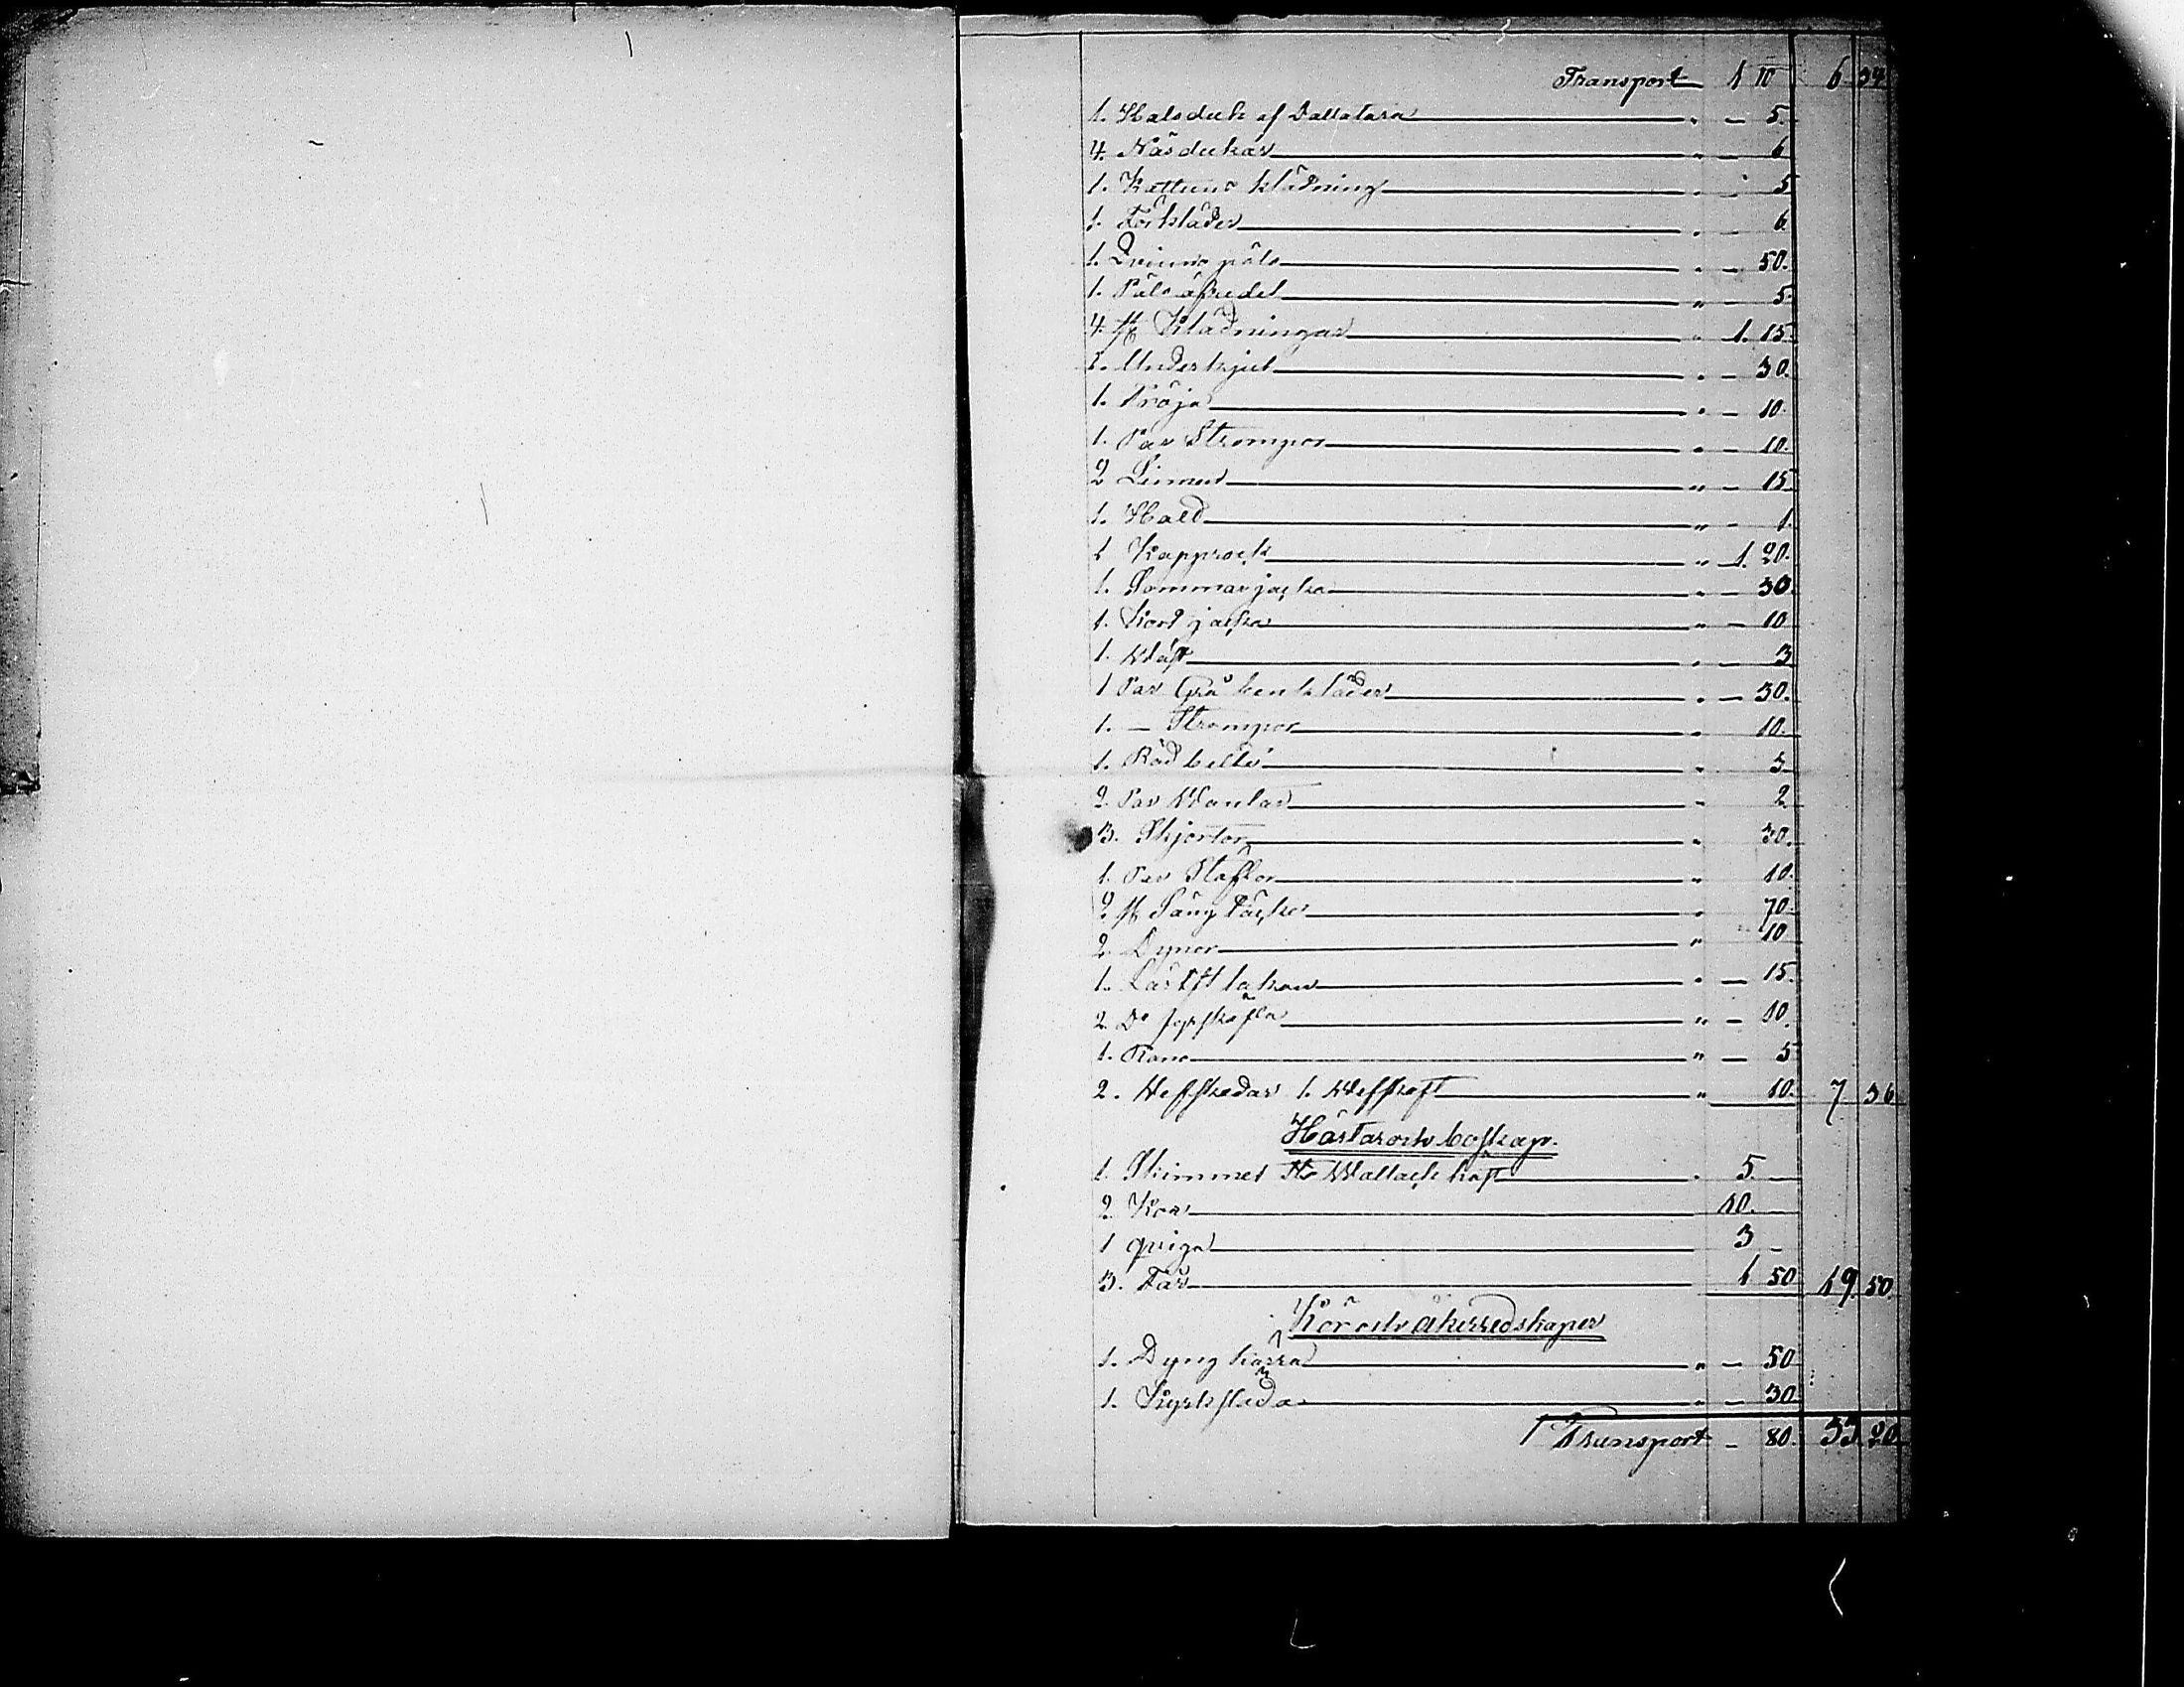 Transport 1 10 6 34
1. Halsduk af Vallatara " — 5.
4. Näsdukar " — 6
1. Kattuns klädning " — 5
1. Förkläder " — 6
1. Qvinns päls " — 50.
1. Päls " — 5.
4. st Klädningar " 1. 15.
1. Underkjul " — 30.
1. Tröja " — 10.
1. Par Strumpor " — 10.
2 Linnen " — 15
1. " — 1.
1 Kapprock " 1. 20.
1. Sommarjacka " — 30.
1. Kort jacka " — 10
1. Wäst " — 3
1 Par Grå benkläder " — 30.
1. — Strumpor " 10.
1. Röd belte " 3
2. Par Wantar " 2
3. Skjortor " 30.
1. Par Stöflor " 10.
2 st Säng täcken " 70.
2. Dynor " 10
1. Lärfts lakan " — 15.
2. Do " — 10.
1. " — 5
2. Wefskedar 1. Wefskeft " 10. 7 36
Hästar och boskap.
1. Skimmel Wallack häst " 5. —
2 Kor 10. —
1 qviga 3 —
3. Får 1 50 19 50
Kör och åkerredskaper
1. Dyng kärra " — 50
1. Kyrksläda " — 30.
Transport — 80. 33 20